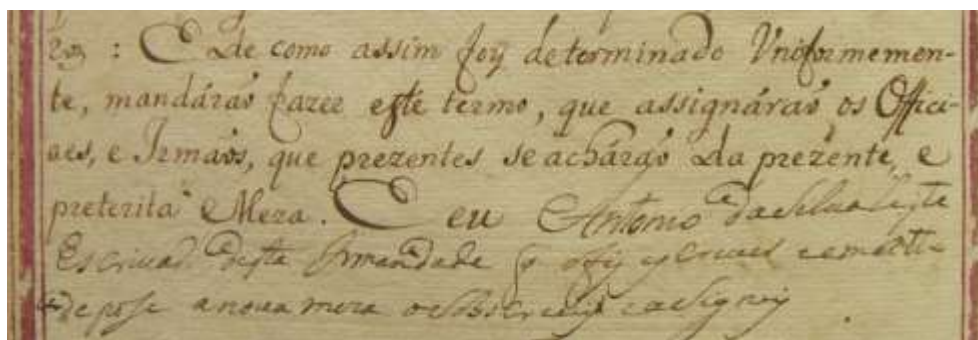 : E de como assim foy determinado Vniformemen-
te, mandáraõ fazer este termo, que assignáraõ os Offici-
aes, e Irmaõs, que prezentes se acháraõ da prezente, e
preterita Meza. E eu Antonio da Silua
Escriuaõ desta Irmandade q
de posse a noua meza o sobscreuij e asigney